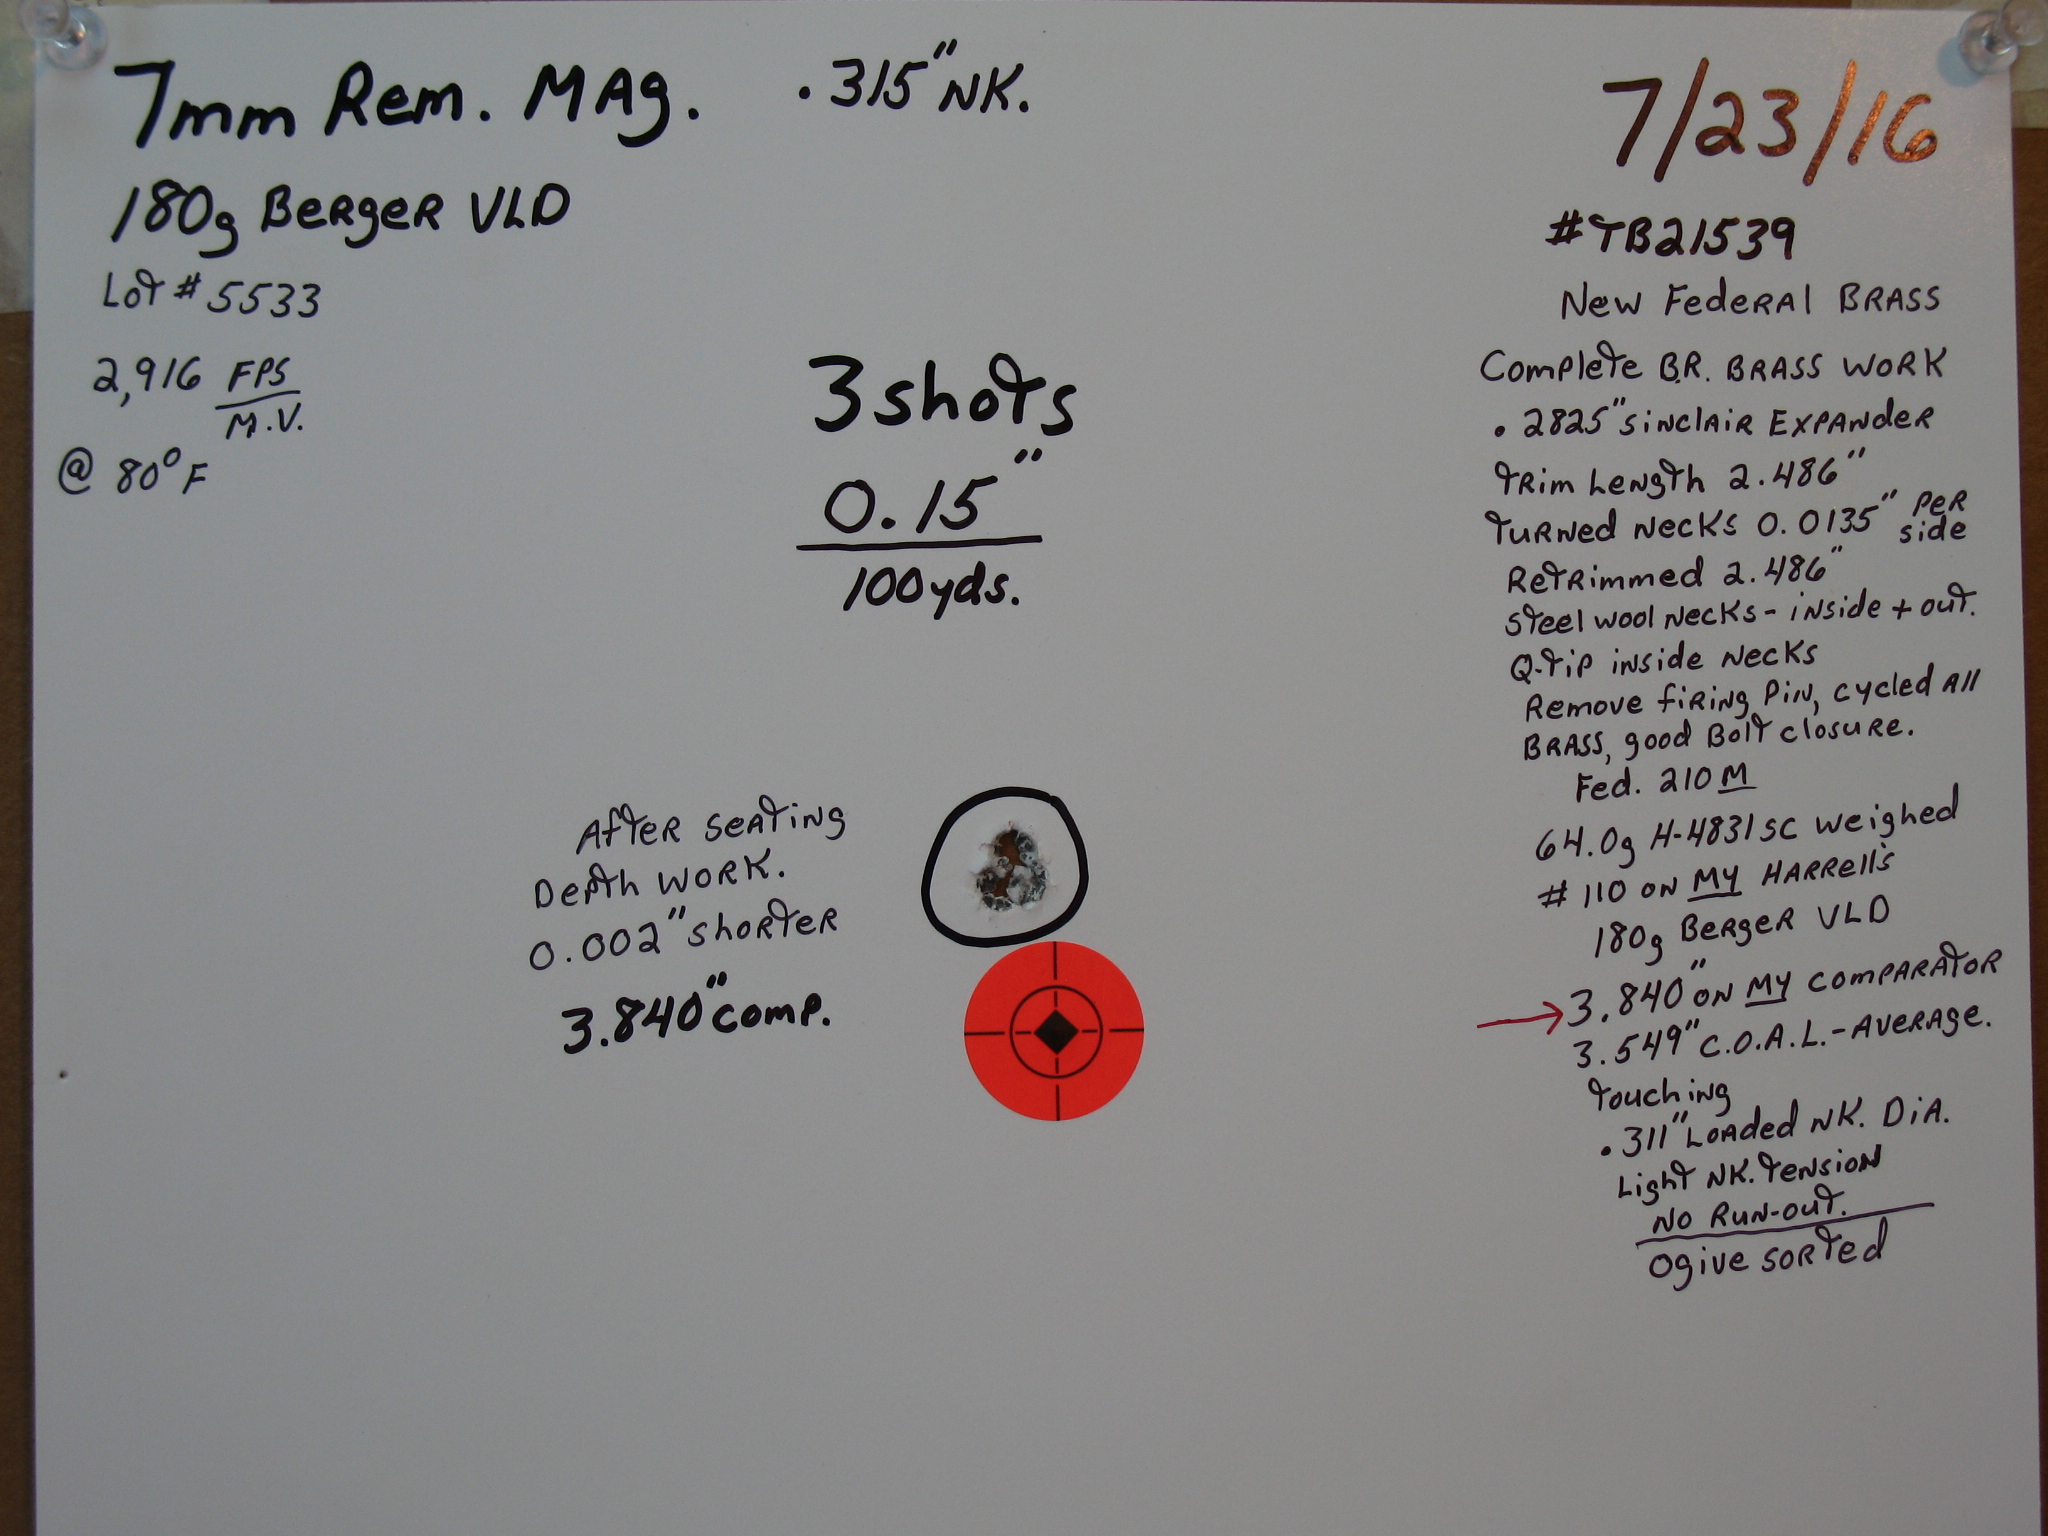 7mm Rem. MAg. .315" NK.
180g Berger VLD
Lot # 5533
2,916 FPS
M.V.
@ 80°F
3 shots
0.15"
100 yds.
After seating
Depth work.
0.002" shorter
3.840" comp.
7/23/16
#TB21539
New Federal Brass
Complete B.R. Brass work
.2825" Sinclair Expander
Trim Length 2.486"
Turned Necks 0.0135" per
side
Retrimmed 2.486"
Steel wool Necks - inside + out.
Q-tip inside Necks
Remove firing Pin, cycled All
Brass, good Bolt closure.
Fed. 210 M
64.0g H-4831SC weighed
# 110 on My Harrell's
180g Berger VLD
→ 3.840" on My comparator
3.549" C.O.A.L. - Average.
Touching
.311" Loaded NK. Dia.
Light NK. Tension
No Run-out.
Ogive sorted